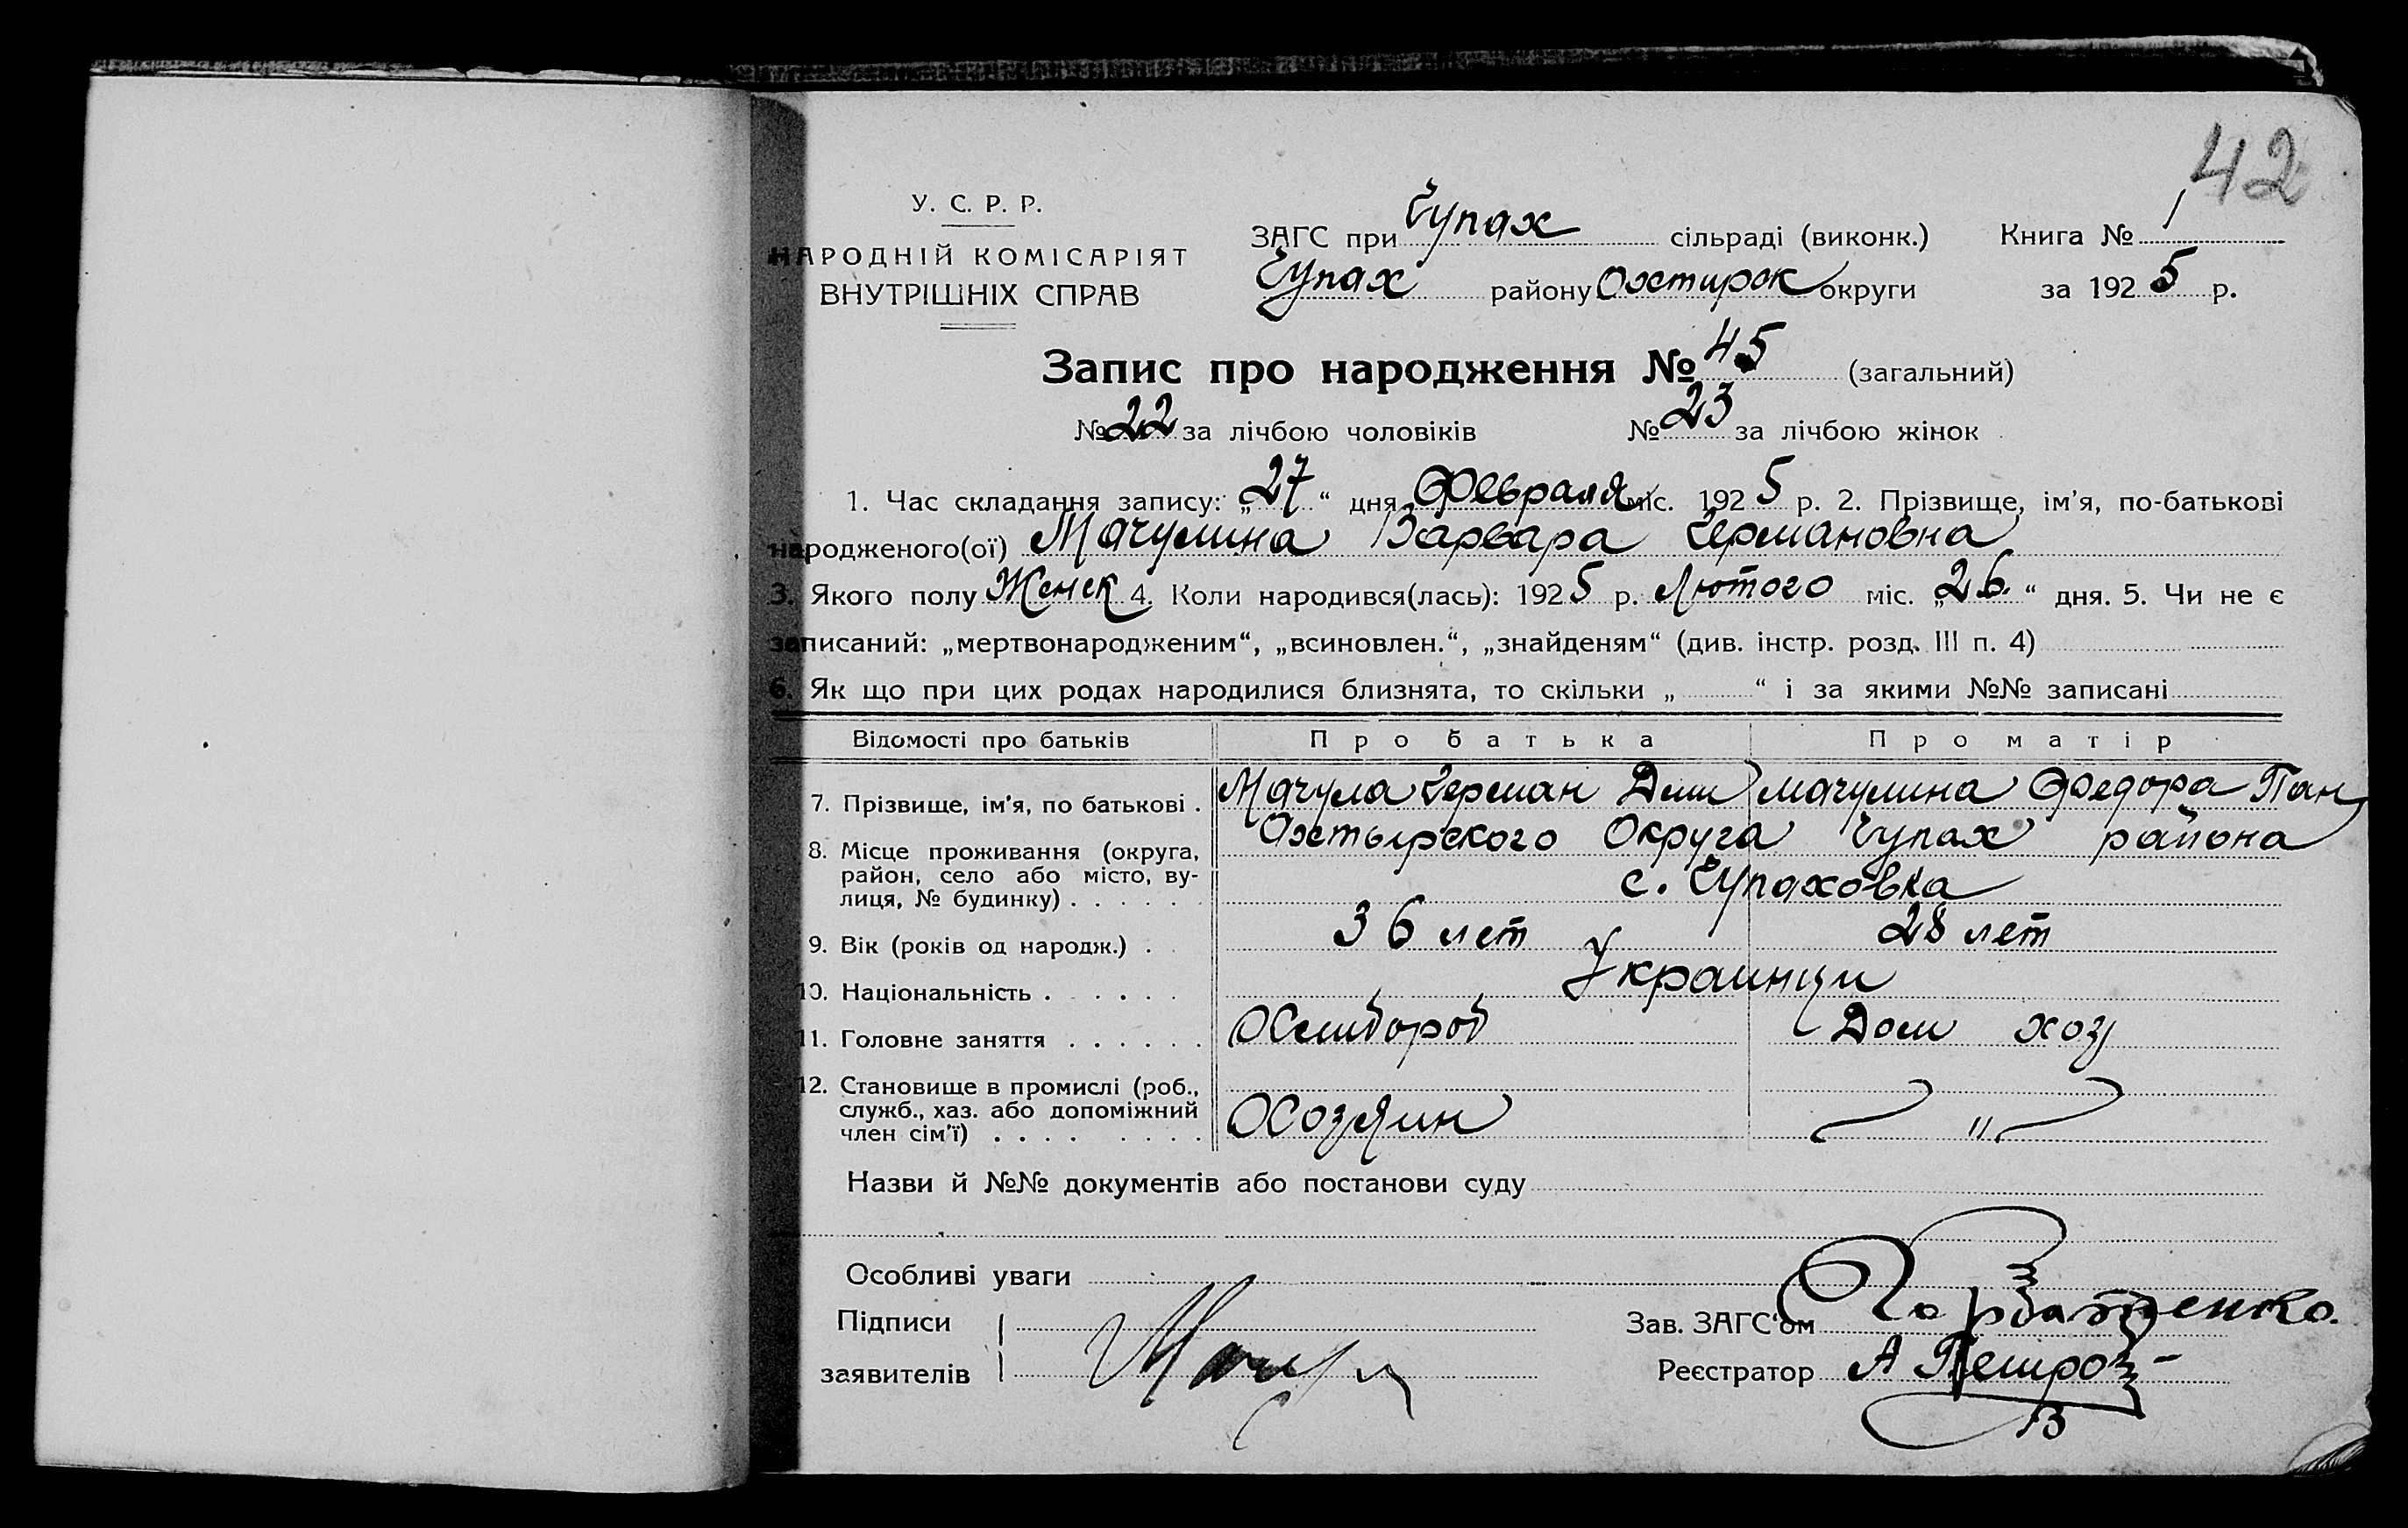 42
У. С. Р. Р.
НАРОДНІЙ КОМІСАРІЯТ
ВНУТРІШНІХ СПРАВ
ЗАГС при Чупах сільраді (виконк.) Книга № 1
Чупах району Охтирск округи за 1925 р.
Запис про народження № 45 (загальний)
№ 22 за лічбою чоловіків № 23 за лічбою жінок
1. Час складання запису: „27“ дня Февраля міс. 1925 р. 2. Прізвище, ім'я, по-батькові
народженого(ої) Мачулина Варвара Германовна
3. Якого полу Женск 4. Коли народився(лась): 1925 р. Лютого міс. „26.“ дня. 5. Чи не є
записаний: „мертвонародженим“, „всиновлен.“, „знайденям“ (див. інстр. розд. III п. 4)
6. Як що при цих родах народилися близнята, то скільки „ “ і за якими №№ записані
Відомості про батьків Про батька Про матір
7. Прізвище, ім'я, по батькові . Мачула Герман Дим Мачулина Федора Пан
8. Місце проживання (округа, район, село або місто, ву-
лиця, № будинку) . . . . . . Охтырского Округа Чупах района
с. Чупаховка
9. Вік (років од народж.) . 36 лет 28 лет
10. Національність . . . . . Украинци
11. Головне заняття . . . . . . Хлибороб Дом хоз
12. Становище в промислі (роб.,
служб., хаз. або допоміжний
член сім'ї) . . . . . . . . Хозяин "
Назви й №№ документів або постанови суду
Особливі уваги
Підписи
заявителів Мачул
Зав. ЗАГС'ом Горбатенко.
Реєстратор А Петров